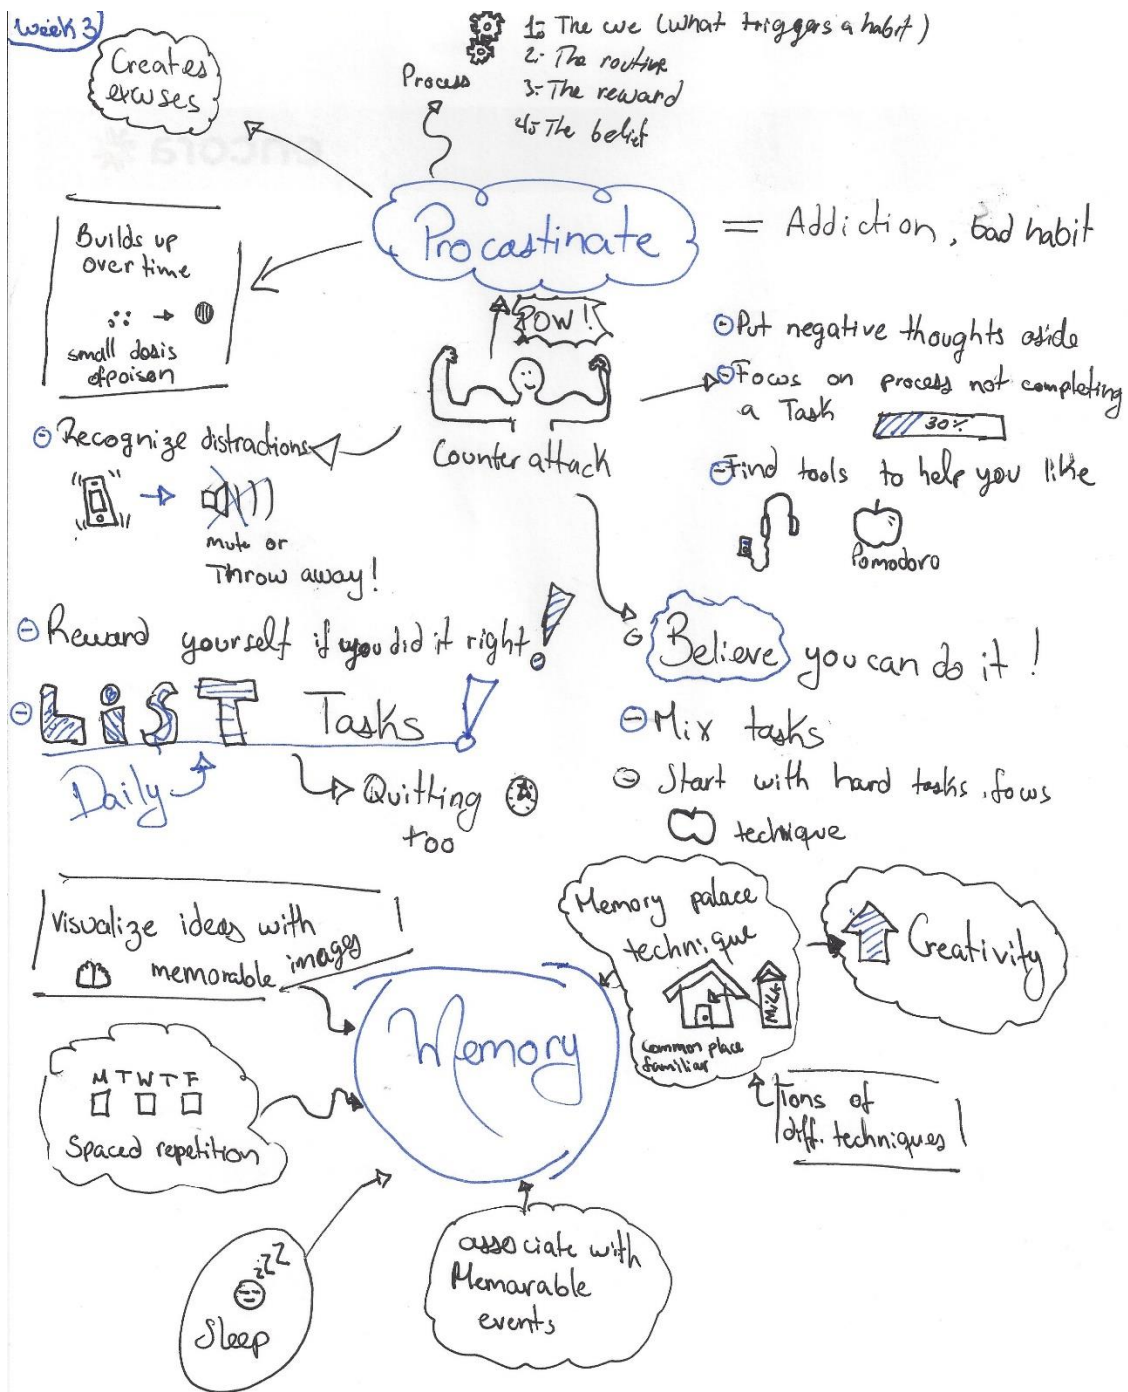 Week 3
Creates
excuses
Process
1: The cue (what triggers a habit)
2.- The routine
3.- The reward
4.- The belief
encora
Procastinate
= Addiction, bad habit
Builds up
over time
small dosis
of poison
POW!
Counter attack
Put negative thoughts aside
Focus on process not completing
a Task
30%
Find tools to help you like
Pomodoro
Recognize distractions
mute or
Throw away!
Reward yourself if you did it right!
LiST Tasks!
Daily
Quitting
too
Believe you can do it!
Mix tasks
Start with hard tasks, focus
technique
Visualize ideas with
memorable images
Memory palace
technique
Milk
common place
familiar
Creativity
Tons of
diff. techniques
Memory
M T W T F
Spaced repetition
zzZ
Sleep
associate with
Memarable
events